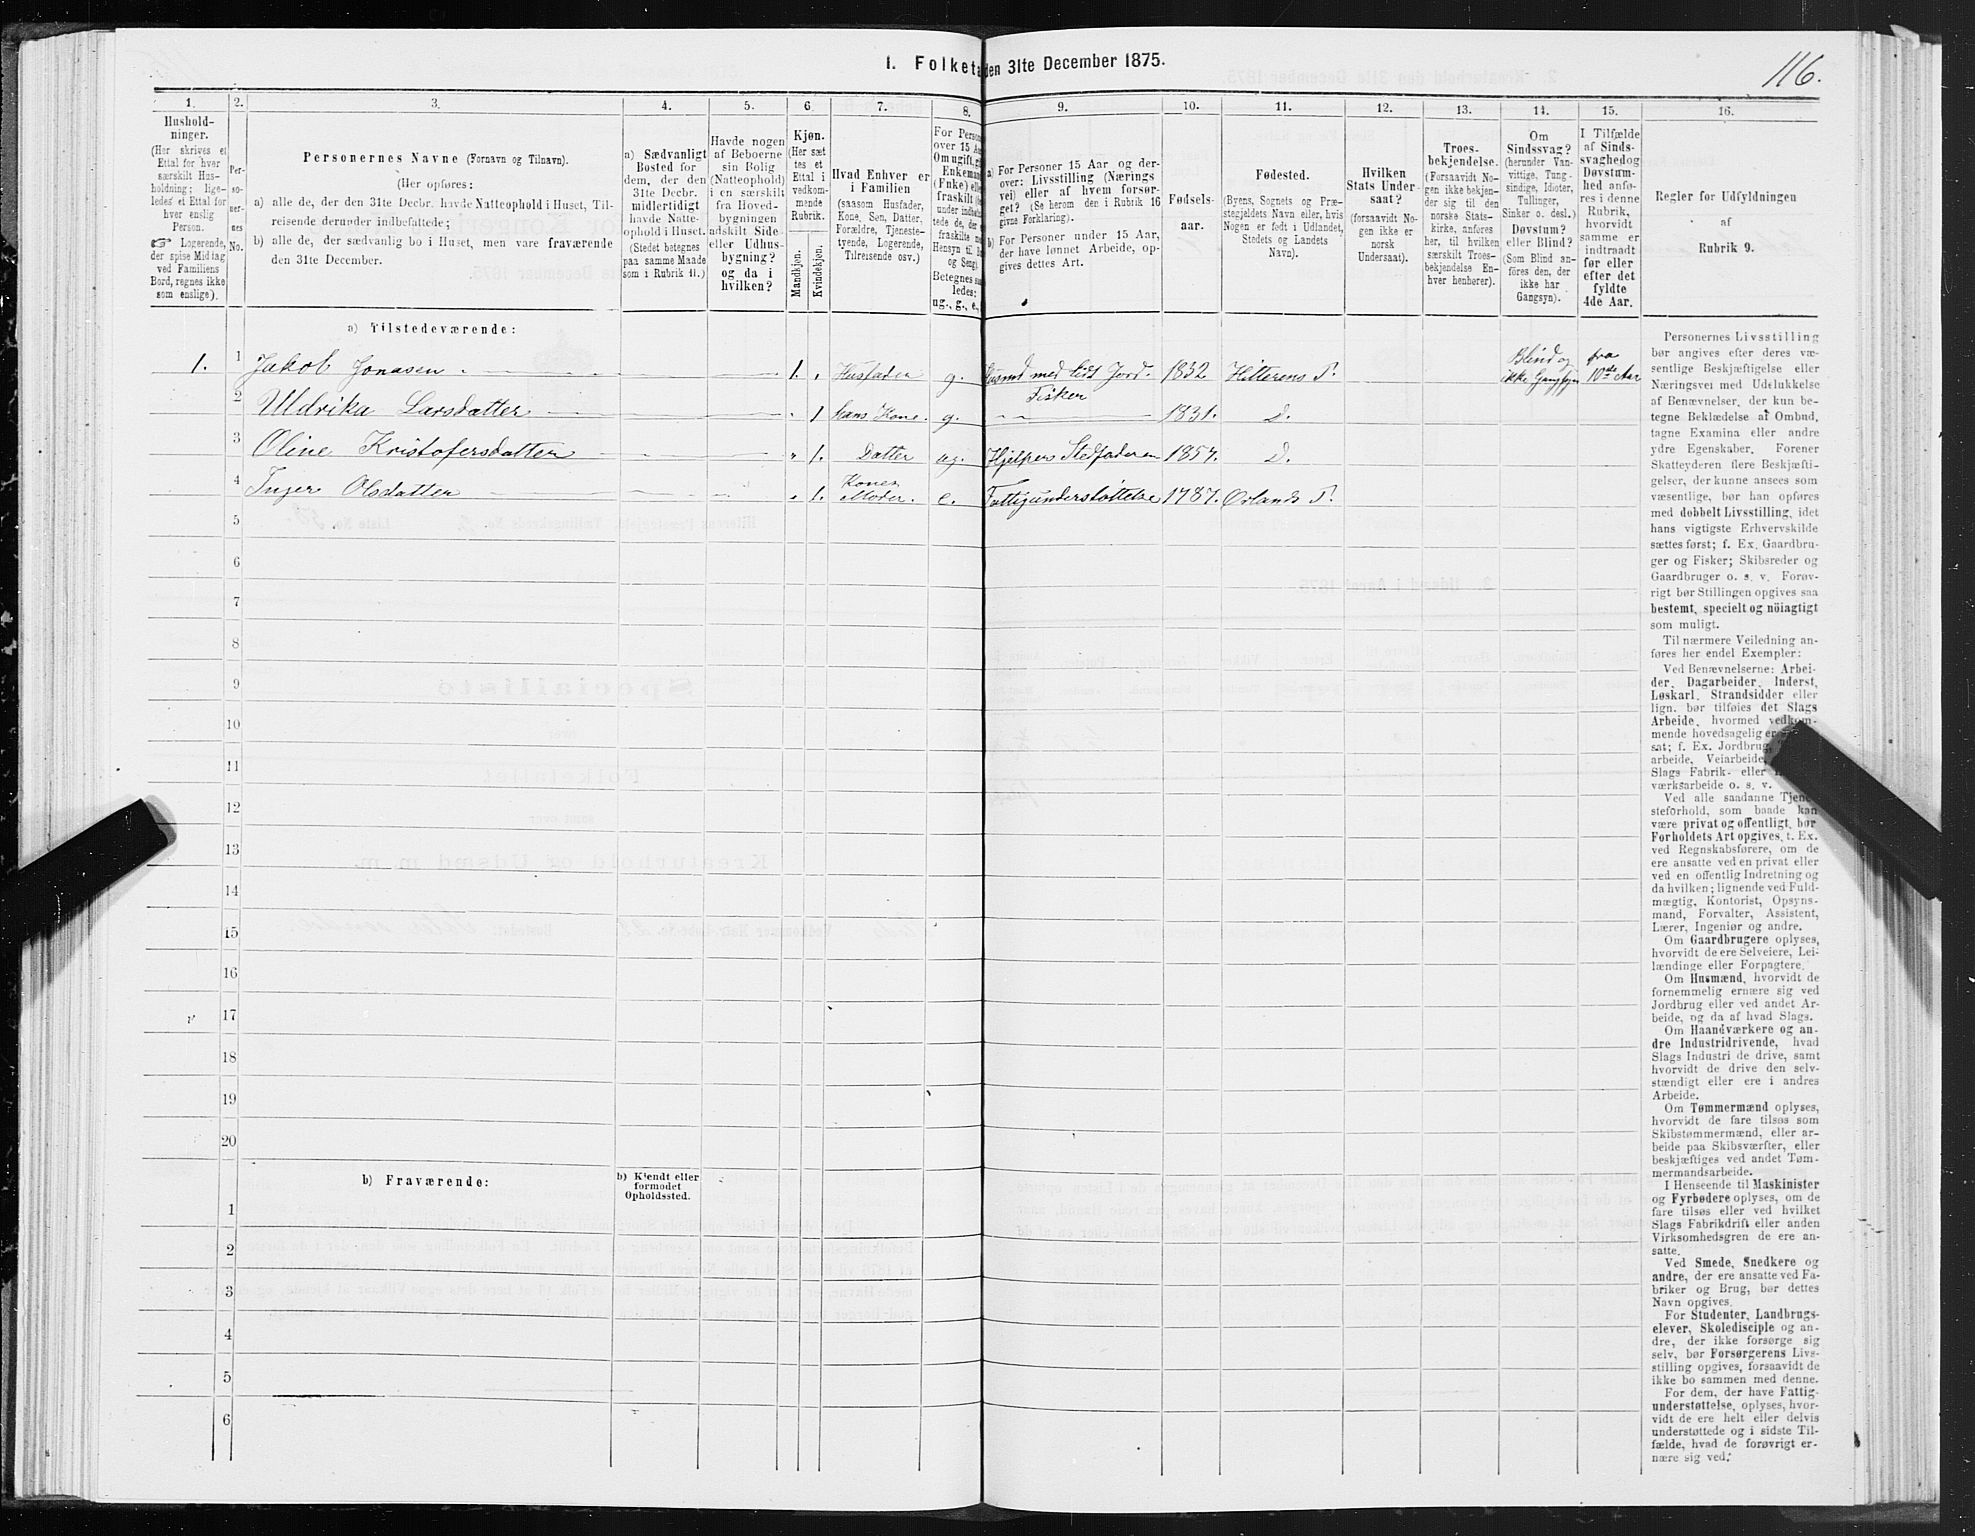 116.
1. Folketa den 31te December 1875.
1. 2. 3. 4. 5. 6. 7. 8. 9. 10. 11. 12. 13. 14. 15. 16.
Hushold-
ninger.
(Her skrives et
Ettal for hver
særskilt Hus-
holdning; lige-
ledes et Ettal for
hver enslig
Person.
☞ Logerende,
der spise Middag
ved Familiens
Bord, regnes ikke
som enslige).
Per-
so-
ner-
nes
No.
Personernes Navne (Fornavn og Tilnavn).
(Her opføres:
a) alle de, der den 31te Decbr. havde Natteophold i Huset, Til-
reisende derunder indbefattede;
b) alle de, der sædvanlig bo i Huset, men vare fraværende
den 31te December.
a) Sædvanligt
Bosted for
dem, der den
31te Decbr.
midlertidigt
havde Natte-
ophold i Huset.
(Stedet betegnes
paa samme Maade
som i Rubrik 11.)
Havde nogen
af Beboerne
sin Bolig
(Natteophold)
i en særskilt
fra Hoved-
bygningen
adskilt Side-
eller Udhus-
bygning?
og da i
hvilken?
Kjøn.
(Her sæt
tes et
Ettal i
vedkom-
mende
Rubrik.
Mandkjøn.
Kvindekjøn.
Hvad Enhver er
i Familien
(saasom Husfader,
Kone, Søn, Datter,
Forældre, Tjeneste-
tyende, Logerende,
Tilreisende osv.)
For Person
over 15 Aa
Om ugift, gi
Enkemand
(Enke) elle
fraskilt
under indbefat
tede de, der
fraskilte
Hensyn til
og Seng).
Betegnes saa
ledes:
ug., g., e.,
a) For Personer 15 Aar og der-
over: Livsstilling (Nærings
vei) eller af hvem forsør-
get? (Se herom den i Rubrik 16
givne Forklaring).
b) For Personer under 15 Aar,
der have lønnet Arbeide, op-
gives dettes Art.
Fødsels-
aar.
Fødested.
(Byens, Sognets og Præ-
stegjeldets Navn eller, hvis
Nogen er født i Udlandet,
Stedets og Landets
Navn).
Hvilken
Stats Under-
saat?
(forsaavidt No-
gen ikke er
norsk
Undersaat).
Troes-
bekjendelse.
(Forsaavidt No-
gen ikke bekjen-
der sig til den
norske Stats-
kirke, anføres
her, til hvilken
særskilt Troes-
bekjendelse En-
hver henhører).
Om
Sindssvag?
(herunder Van-
vittige, Tung-
sindige, Idioter,
Tullinger,
Sinker o. desl.)
Døvstum?
eller Blind?
(Som Blind an-
føres den, der
ikke har
Gangsyn).
I Tilfælde
af Sinds-
svaghed og
Døvstum-
hed anfø-
res i denne
Rubrik,
hvorvidt
samme er
indtraadt
før eller
efter det
fyldte
4de Aar.
Regler for Udfyldningen
af
Rubrik 9.
a) Tilstedeværende:
1. 1 Jakob Jonasen 1. Husfader g. Husmd med lidt Jord. Fisker 1832 Hitterens P. Blind og ikke Gangsyn fra 10de Aar
2 Uldrika Larsdatter 1 hans Kone g. 1831. D.
3 Oline Kristofersdatter 1. Datter ug. Hjelper Stedfaderen 1857. D.
4 Inger Olsdatter 1. Konens Moder. e. Fattigunderstøttelse 1787. Ørlands P.
5
6
7
8
9
10
11
12
13
14
15
16
17
18
19
20
b) Fraværende:
b) Kjendt eller
formodet
Opholdssted.
1
2
3
4
5
6
Personernes Livsstilling
bør angives efter deres væ-
sentlige Beskjæftigelse eller
Næringsvei med Udelukkelse
af Benævnelser, der kun be-
tegne Beklædelse af Ombud,
tagne Examina eller andre
ydre Egenskaber. Forener
Skatteyderen flere Beskjæfti-
gelser, der kunne ansees som
væsentlige, bør han opføres
med dobbelt Livsstilling, idet
hans vigtigste Erhvervskilde
sættes først; f. Ex. Gaardbru-
ger og Fisker; Skibsreder og
Gaardbruger o. s. v. Forøv-
rigt bør Stillingen opgives saa
bestemt, specielt og nöiagtigt
som muligt.
Til nærmere Veiledning an-
føres her endel Exempler:
Ved Benævnelserne: Arbei-
der, Dagarbeider, Inderst,
Løskarl, Strandsidder eller
lign. bør tilføies det Slags
Arbeide, hvormed vedkom-
mende hovedsagelig er
sat; f. Ex. Jordbrug,
arbeide, Veiarbeide,
Slags Fabrik- eller
værksarbeide o. s. v.
Ved alle saadanne Tjene-
steforhold, som baade kan
være privat og offentligt, bør
Forholdets Art opgives, t. Ex.
ved Regnskabsførere, om de
ere ansatte ved en privat eller
ved en offentlig Indretning og
da hvilken; lignende ved Fuld-
mægtig, Kontorist, Opsyns-
mand, Forvalter, Assistent,
Lærer, Ingeniør og andre.
Om Gaardbrugere oplyses,
hvorvidt de ere Selveiere, Lei-
lændinge eller Forpagtere.
Om Husmænd, hvorvidt de
fornemmelig ernære sig ved
Jordbrug eller ved andet Ar-
beide, og da af hvad Slags.
Om Haandværkere og an-
dre Industridrivende, hvad
Slags Industri de drive, samt
hvorvidt de drive den selv-
stændigt eller ere i andres
Arbeide.
Om Tømmermænd oplyses,
hvorvidt de fare tilsøs som
Skibstømmermænd, eller ar-
beide paa Skibsværfter, eller
beskjæftiges ved andet Tøm-
mermandsarbeide.
I Henseende til Maskinister
og Fyrbødere oplyses, om de
fare tilsøs eller ved hvilket
Slags Fabrikdrift eller anden
Virksomhedsgren de ere an-
satte.
Ved Smede, Snedkere og
andre, der ere ansatte ved Fa-
briker og Brug, bør dettes
Navn opgives.
For Studenter, Landbrugs-
elever, Skoledisciple og an-
dre, der ikke forsørge sig
selv, bør Forsørgerens Livs-
stilling opgives, forsaavidt de
ikke bo sammen med denne.
For dem, der have Fattig-
understøttelse, oplyses, hvor-
vidt de ere helt eller delvis
understøttede og i sidste Til-
fælde, hvad de forøvrigt er-
nære sig ved.